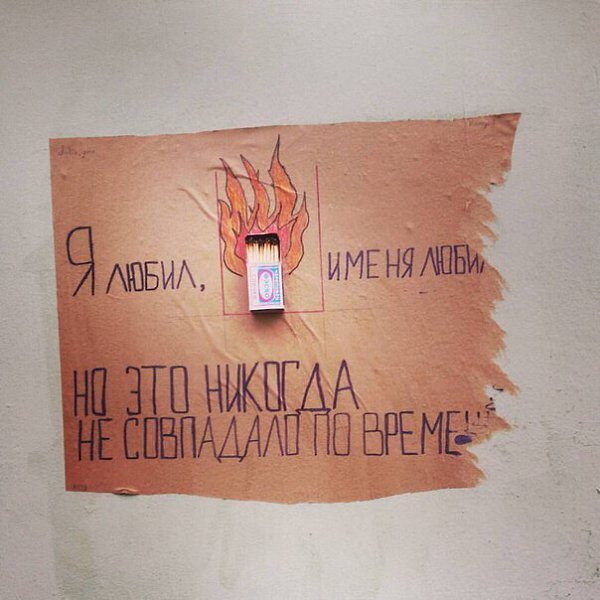 Я ЛЮБИЛ, И МЕНЯ ЛЮБИ
НО ЭТО НИКОГДА
НЕ СОВПАДАЛО ПО ВРЕМЕ